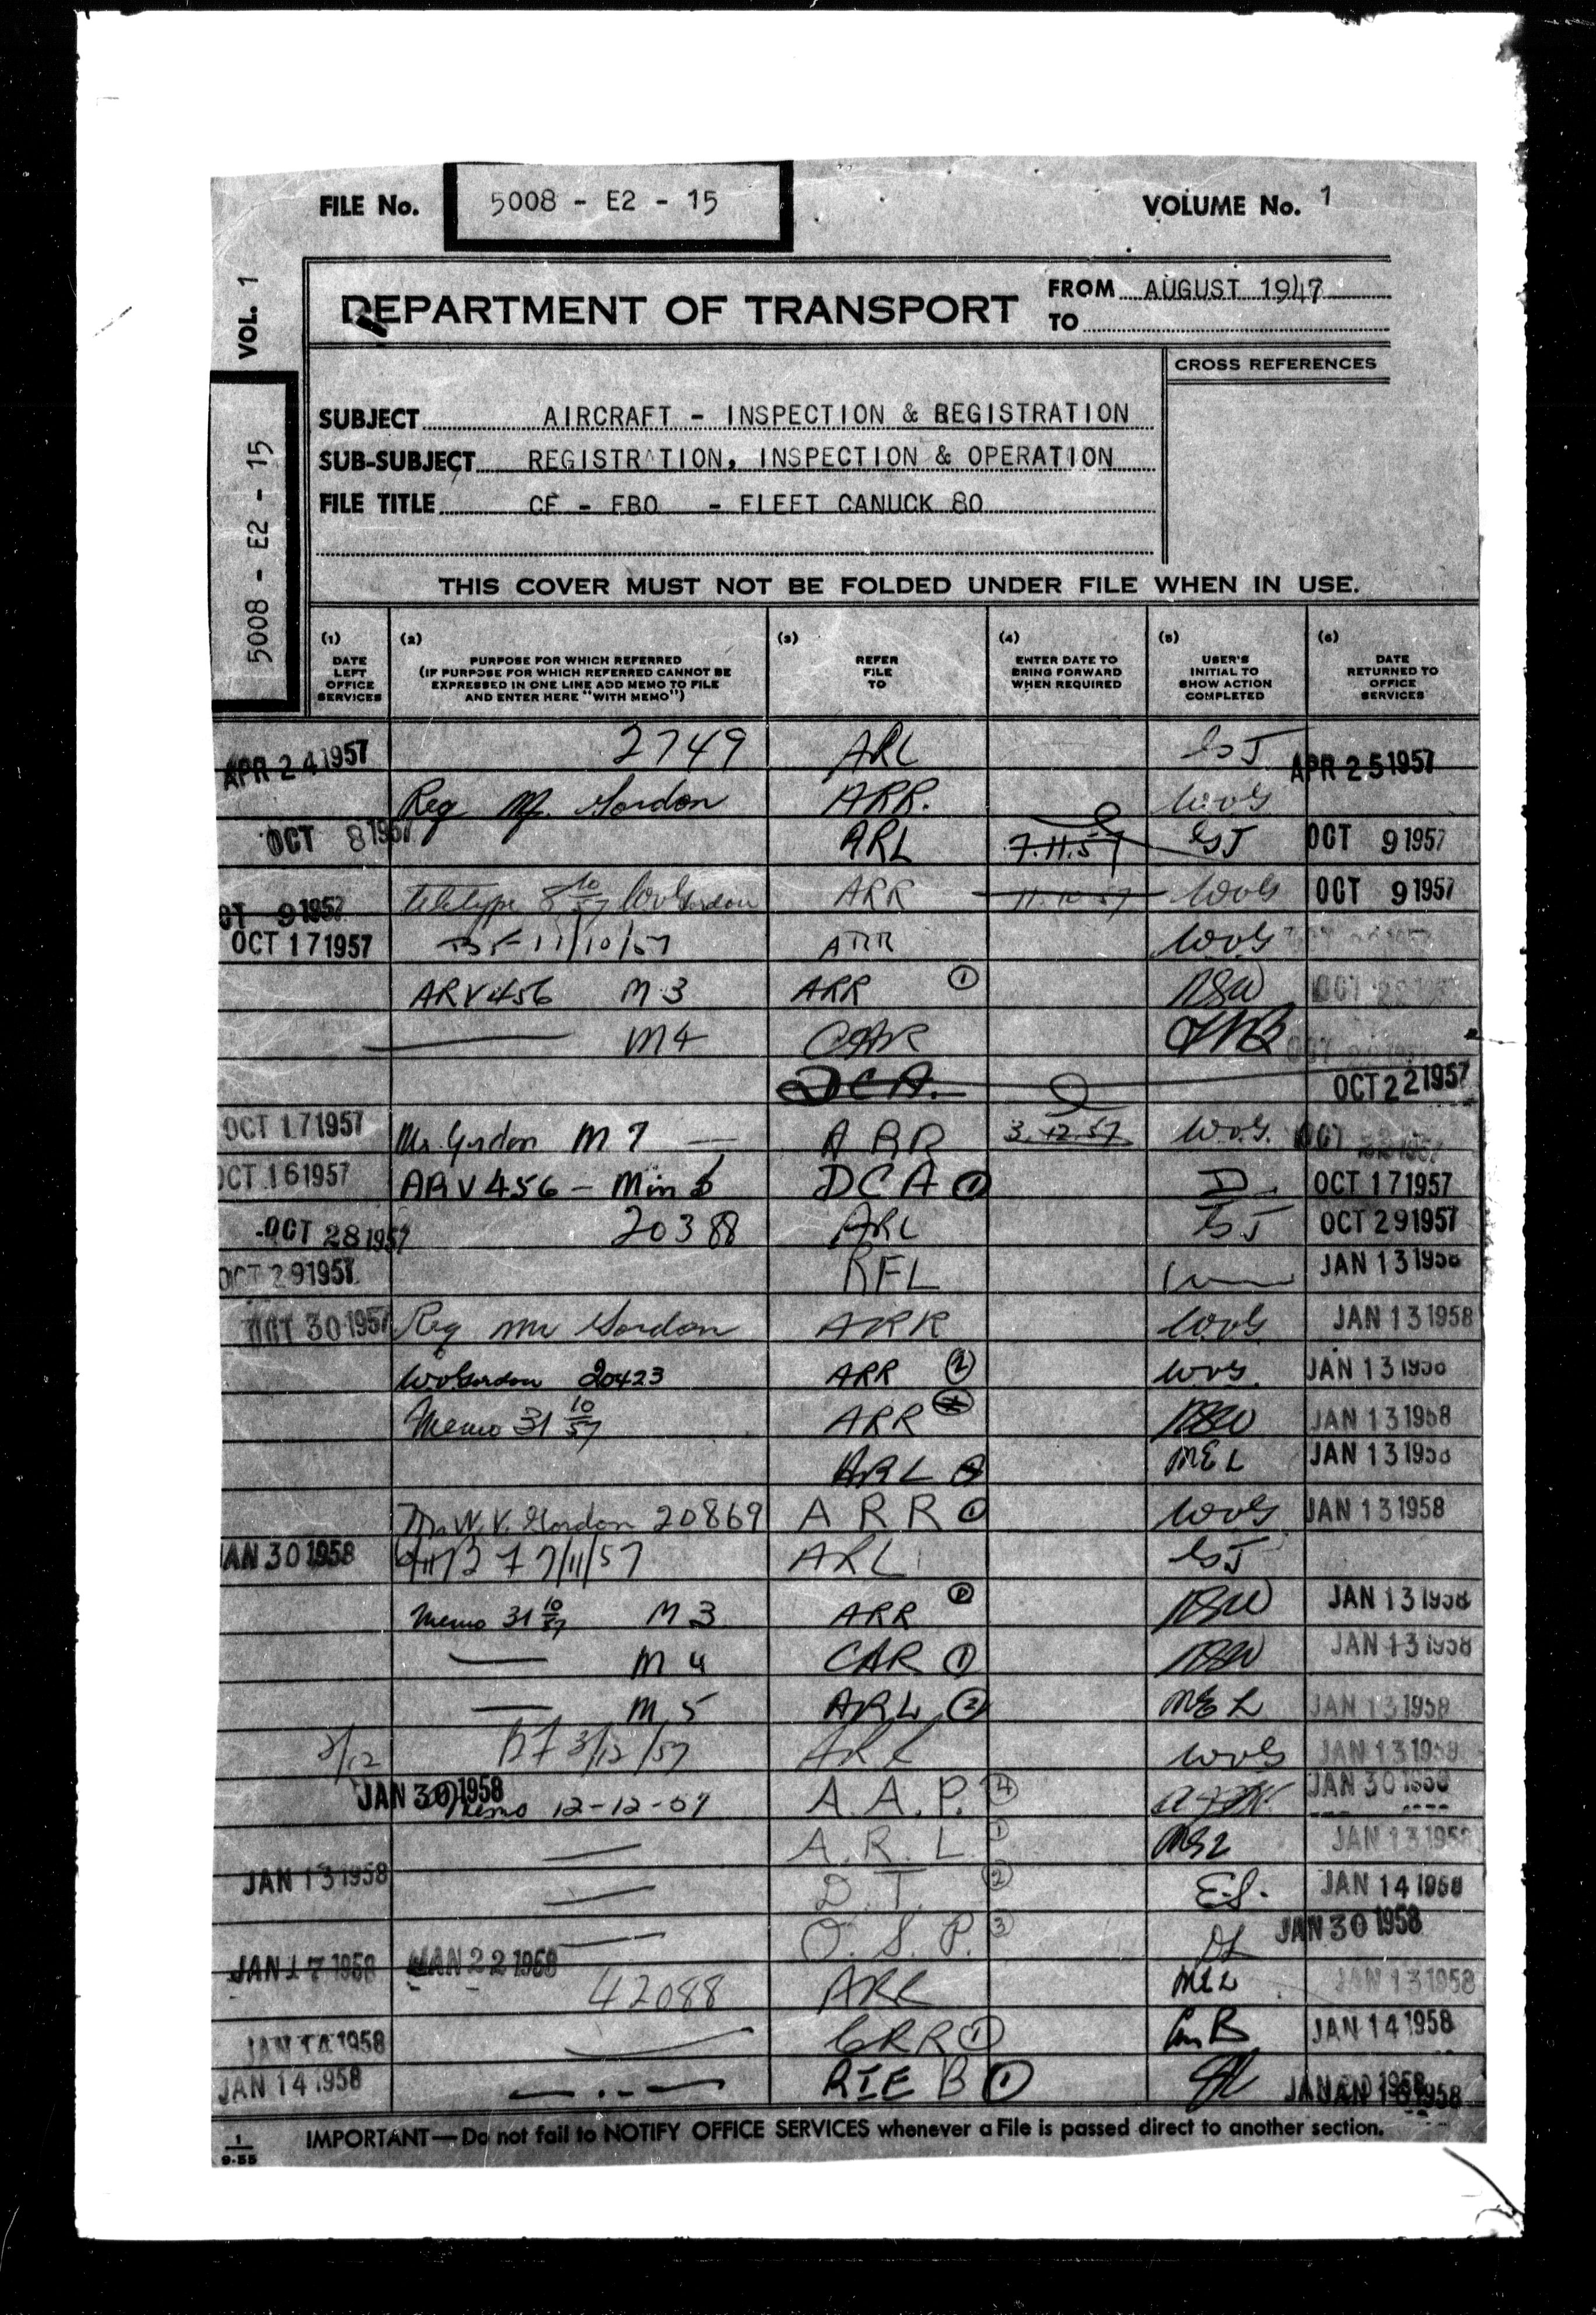 FILE No. 5008 - E2 - 15 VOLUME No. 1
VOL. 1
5008 - E2 - 15
DEPARTMENT OF TRANSPORT
FROM AUGUST 1947
TO
CROSS REFERENCES
SUBJECT AIRCRAFT - INSPECTION & REGISTRATION
SUB-SUBJECT REGISTRATION, INSPECTION & OPERATION
FILE TITLE CF - EBO - FLEET CANUCK 80
THIS COVER MUST NOT BE FOLDED UNDER FILE WHEN IN USE.
(1) DATE LEFT OFFICE SERVICES
(2) PURPOSE FOR WHICH REFERRED (IF PURPOSE FOR WHICH REFERRED CANNOT BE EXPRESSED IN ONE LINE ADD MEMO TO FILE AND ENTER HERE "WITH MEMO")
(3) REFER FILE TO
(4) ENTER DATE TO BRING FORWARD WHEN REQUIRED
(5) USER'S INITIAL TO SHOW ACTION COMPLETED
(6) DATE RETURNED TO OFFICE SERVICES
APR 24 1957 2749 ARL APR 25 1957
Req Mr. Gordon ARR. WVG
OCT 8 1957 ARL 7.11.57 OCT 9 1957
OCT 9 1957 Teletype 8 10/57 WVGordon ARR 11.10.57 WVG OCT 9 1957
OCT 17 1957 BF 11/10/57 ARR WVG
ARV456 M3 ARR 1
M4 CAR
DCA. OCT 22 1957
OCT 17 1957 Mr. Gordon M7 ARR 3.12.57 WVG.
OCT 16 1957 ARV456 - Min DCA 1 OCT 17 1957
OCT 28 1957 20388 ARL OCT 29 1957
OCT 29 1957 RFL JAN 13 1958
OCT 30 1957 Req Mr Gordon ARR WVG JAN 13 1958
WVGordon 20423 ARR WVG. JAN 13 1958
Memo 31 10/57 ARR JAN 13 1958
ARL MEL JAN 13 1958
Mr. W. V. Gordon 20869 ARR 1 WVG JAN 13 1958
JAN 30 1958 7/11/57 ARL
Memo 31 10/57 M3 ARR JAN 13 1958
M4 CAR 1 JAN 13 1958
M5 ARL 2 MEL JAN 13 1958
3/12 BF 3/12/57 ARL WVG JAN 13 1958
JAN 30 1958 Memo 12-12-57 A.A.P. 4 JAN 30 1958
A.R.L. 1 MEL JAN 13 1958
JAN 13 1958 D.T. 2 E.S. JAN 14 1958
O.S.P. 3 JAN 30 1958
JAN 17 1958 JAN 22 1958 42088 ARL MEL JAN 13 1958
JAN 14 1958 1 JAN 14 1958
JAN 14 1958 RIE B 1
IMPORTANT—Do not fail to NOTIFY OFFICE SERVICES whenever a File is passed direct to another section.
1
9-55